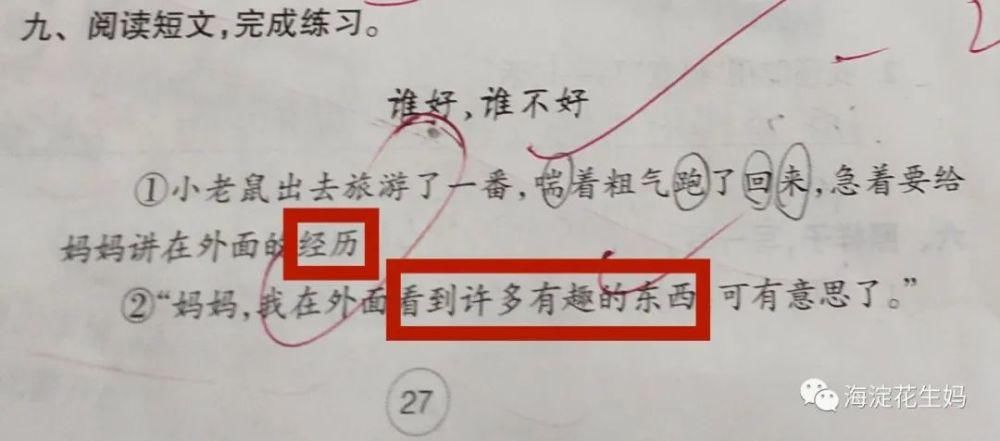 九、阅读短文,完成练习。
谁好,谁不好
①小老鼠出去旅游了一番,喘着粗气跑了回来,急着要给
妈妈讲在外面的经历
②“妈妈,我在外面看到许多有趣的东西 可有意思了。”
27
海淀花生妈